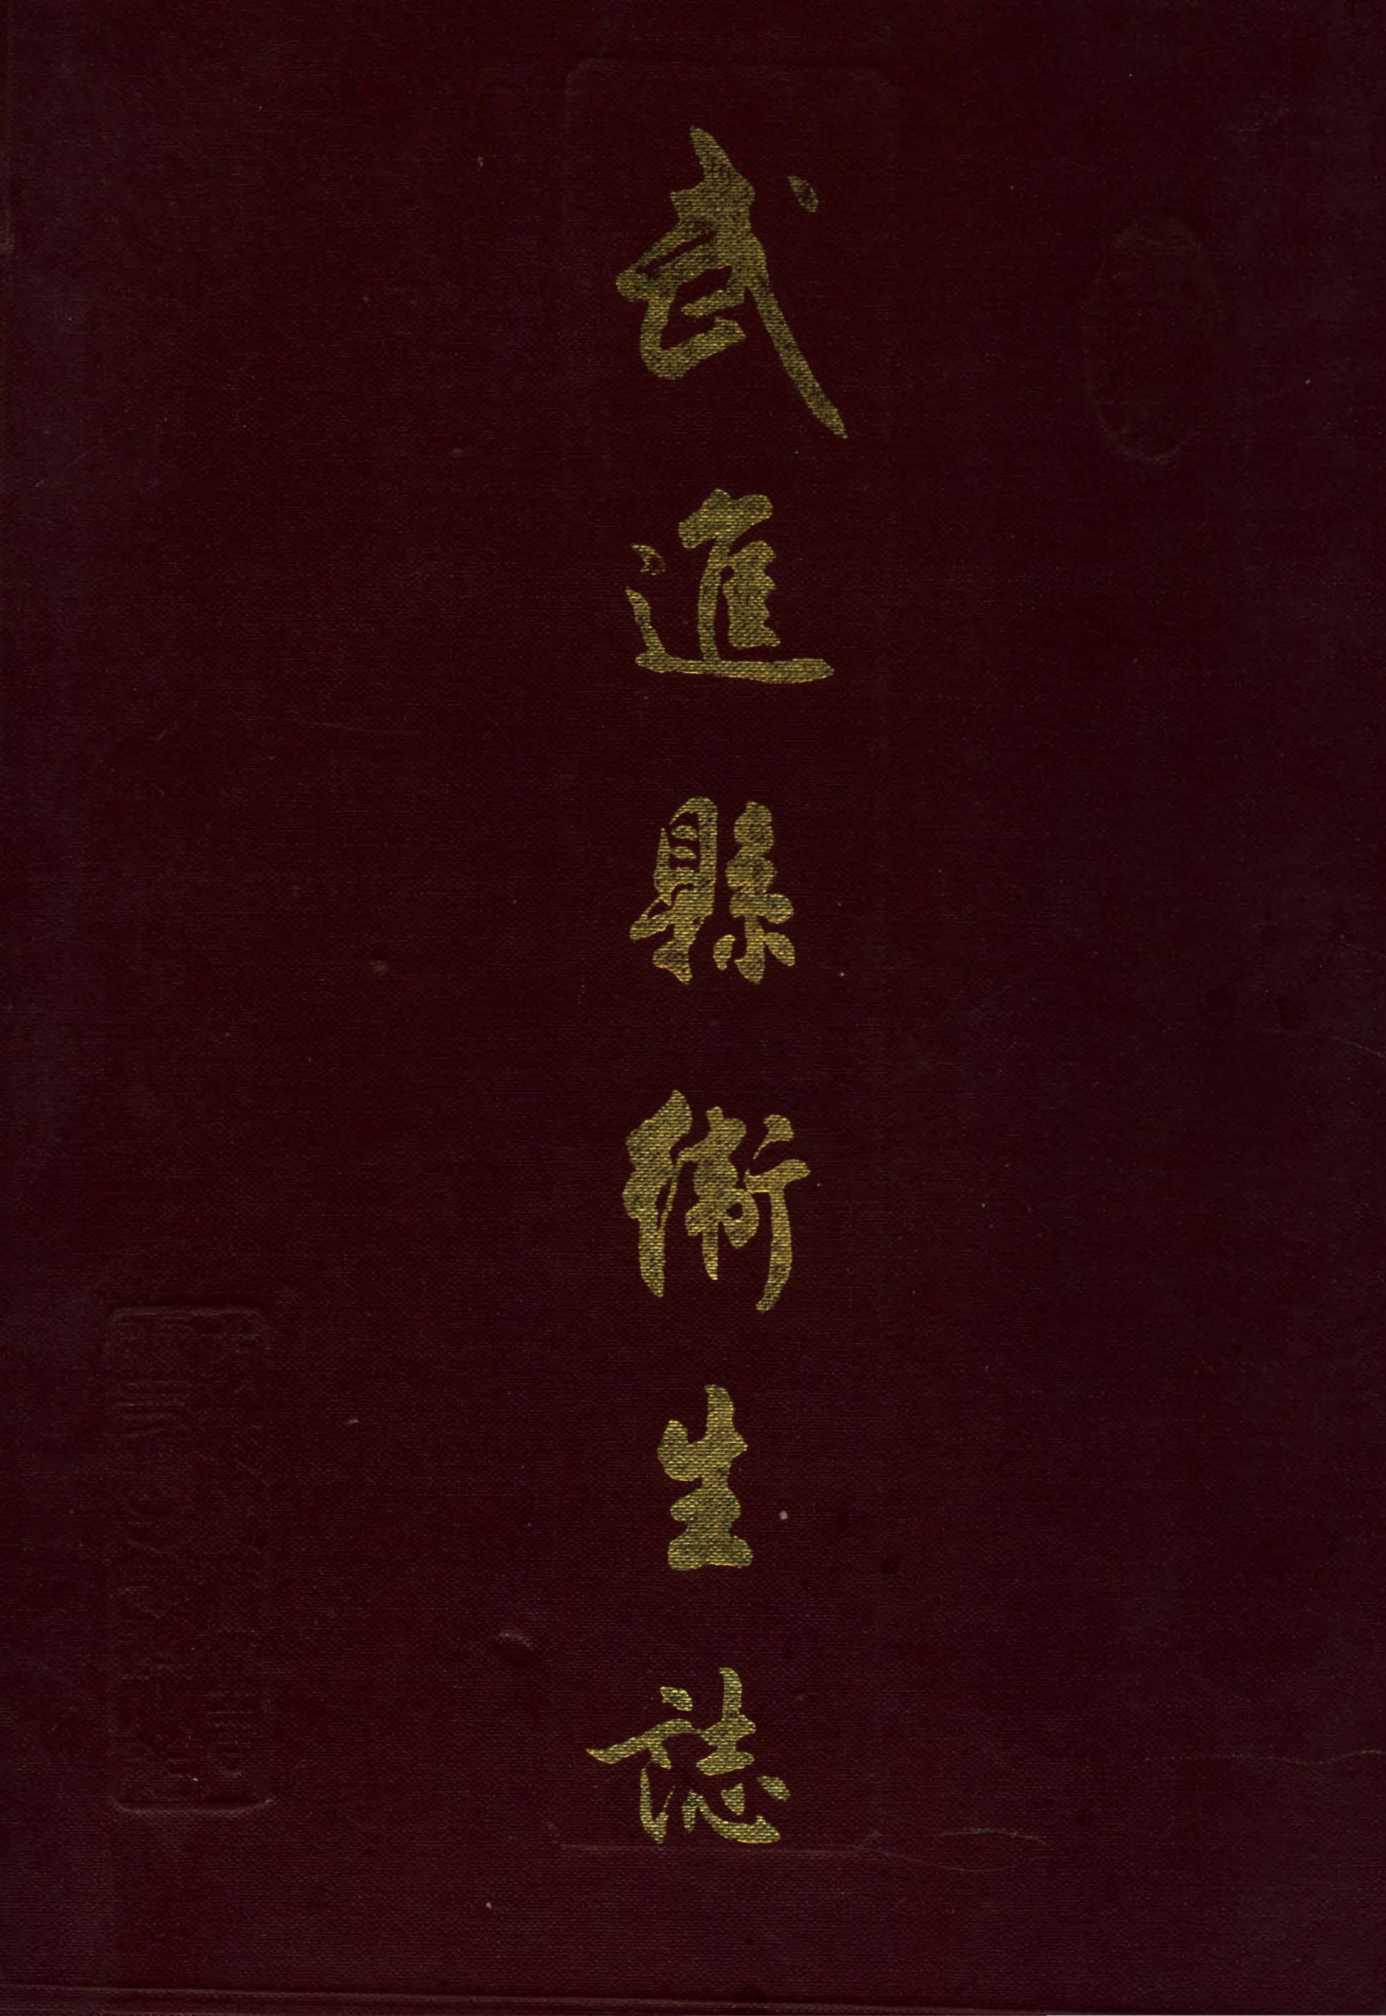 武進縣衛生誌